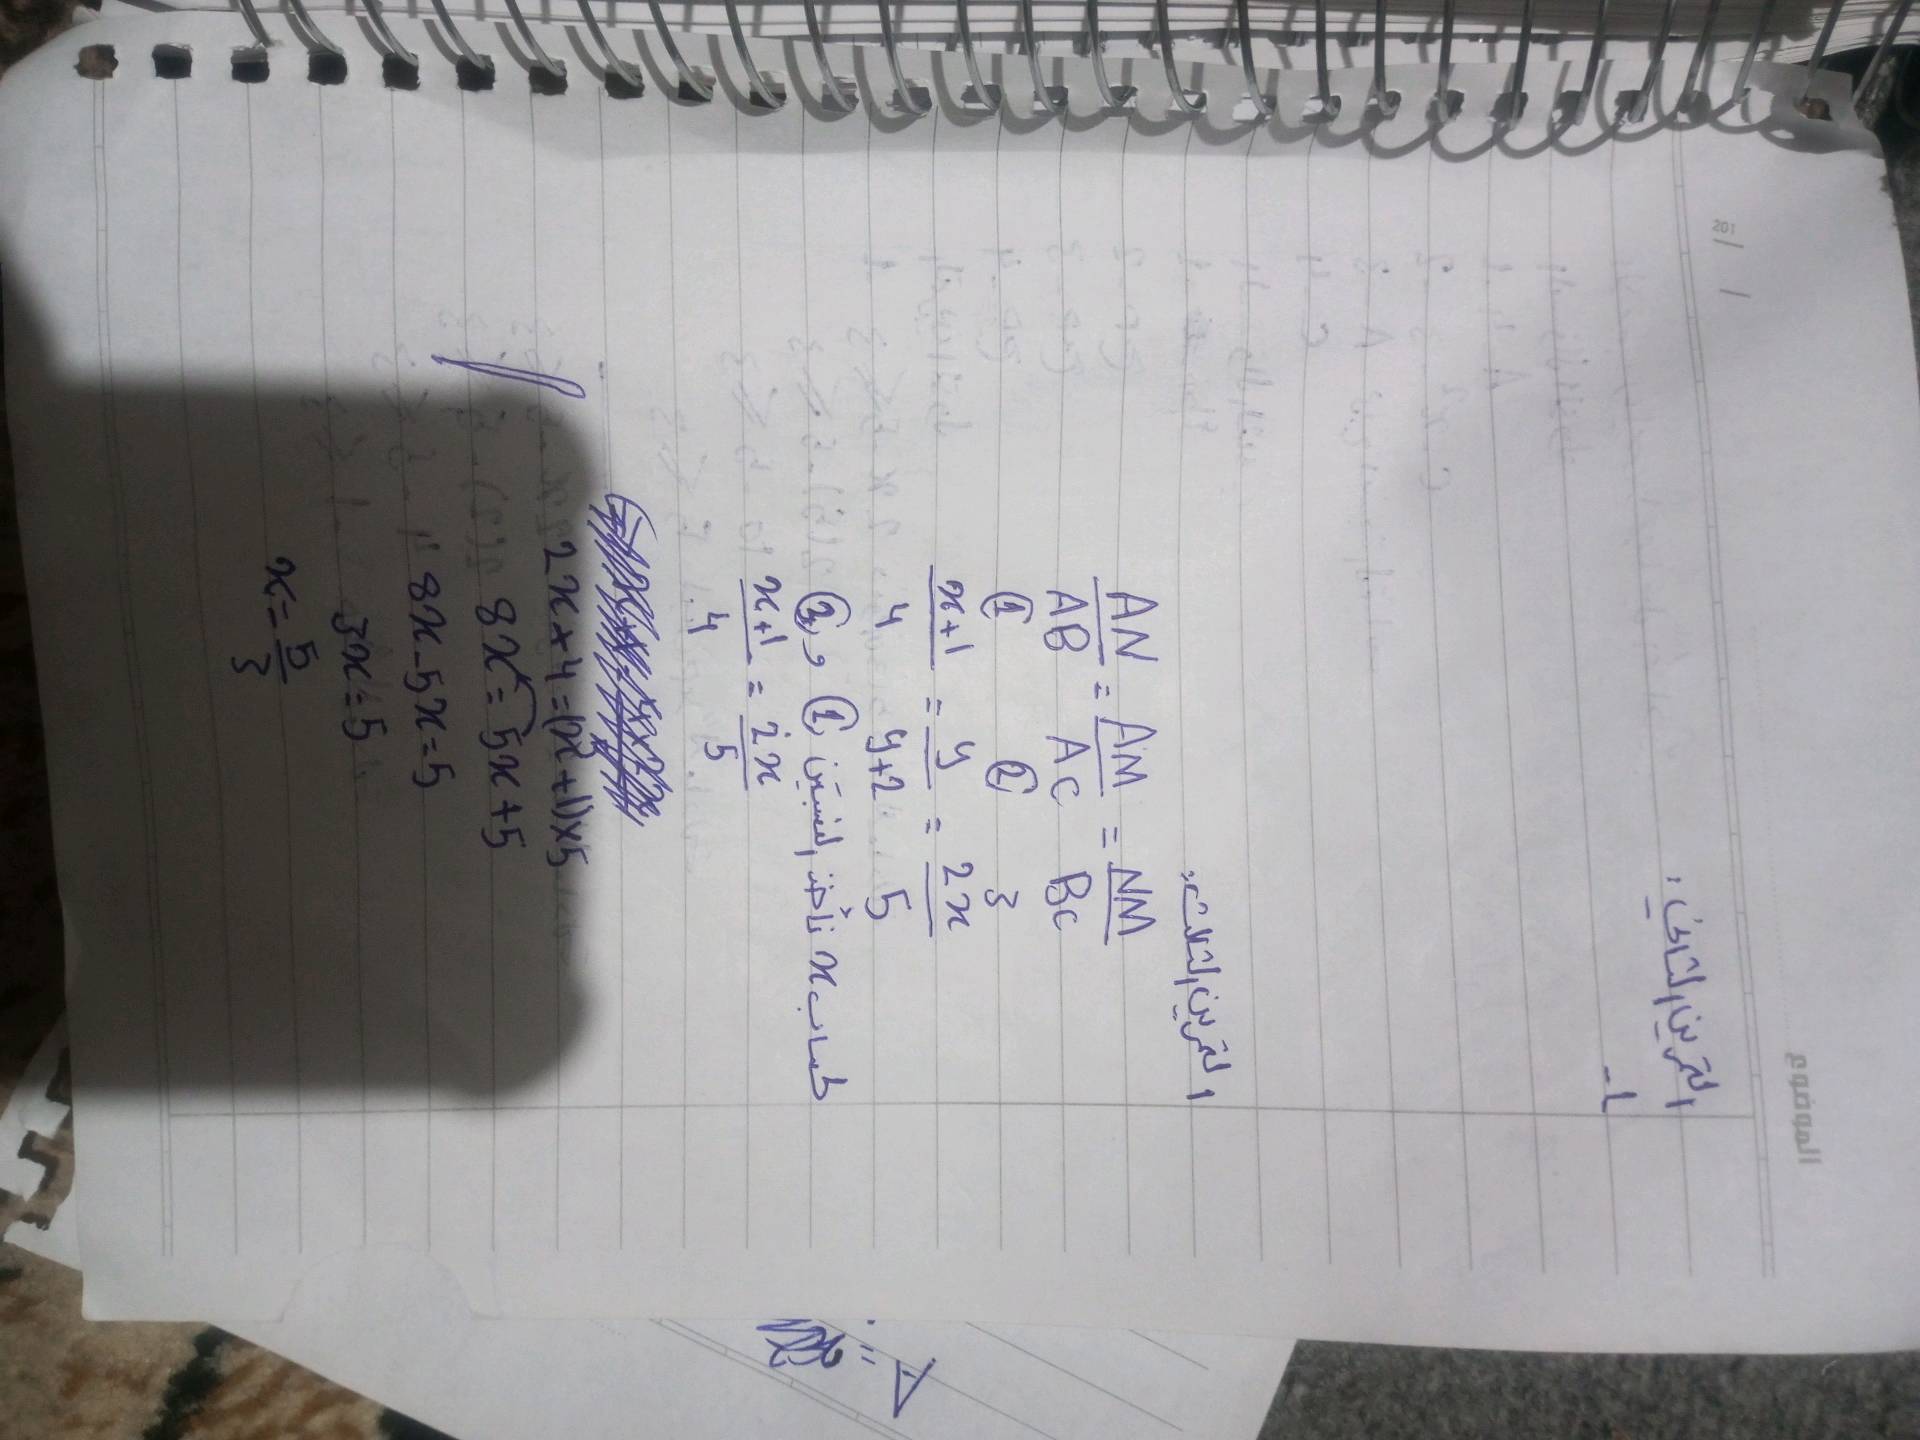 الموضوع
201 / /
التمرين الثاني:
1-
التمرين الثالث:
AN/AB = AM/AC = NM/BC
① ② 3
x+1/4 = y/y+2 = 2x/5
لحساب x نأخذ النسبتين ① و ②
x+1/4 = 2x/5
2x×4=(x+1)×5
8x=5x+5
8x-5x=5
3x=5
x=5/3
A
=